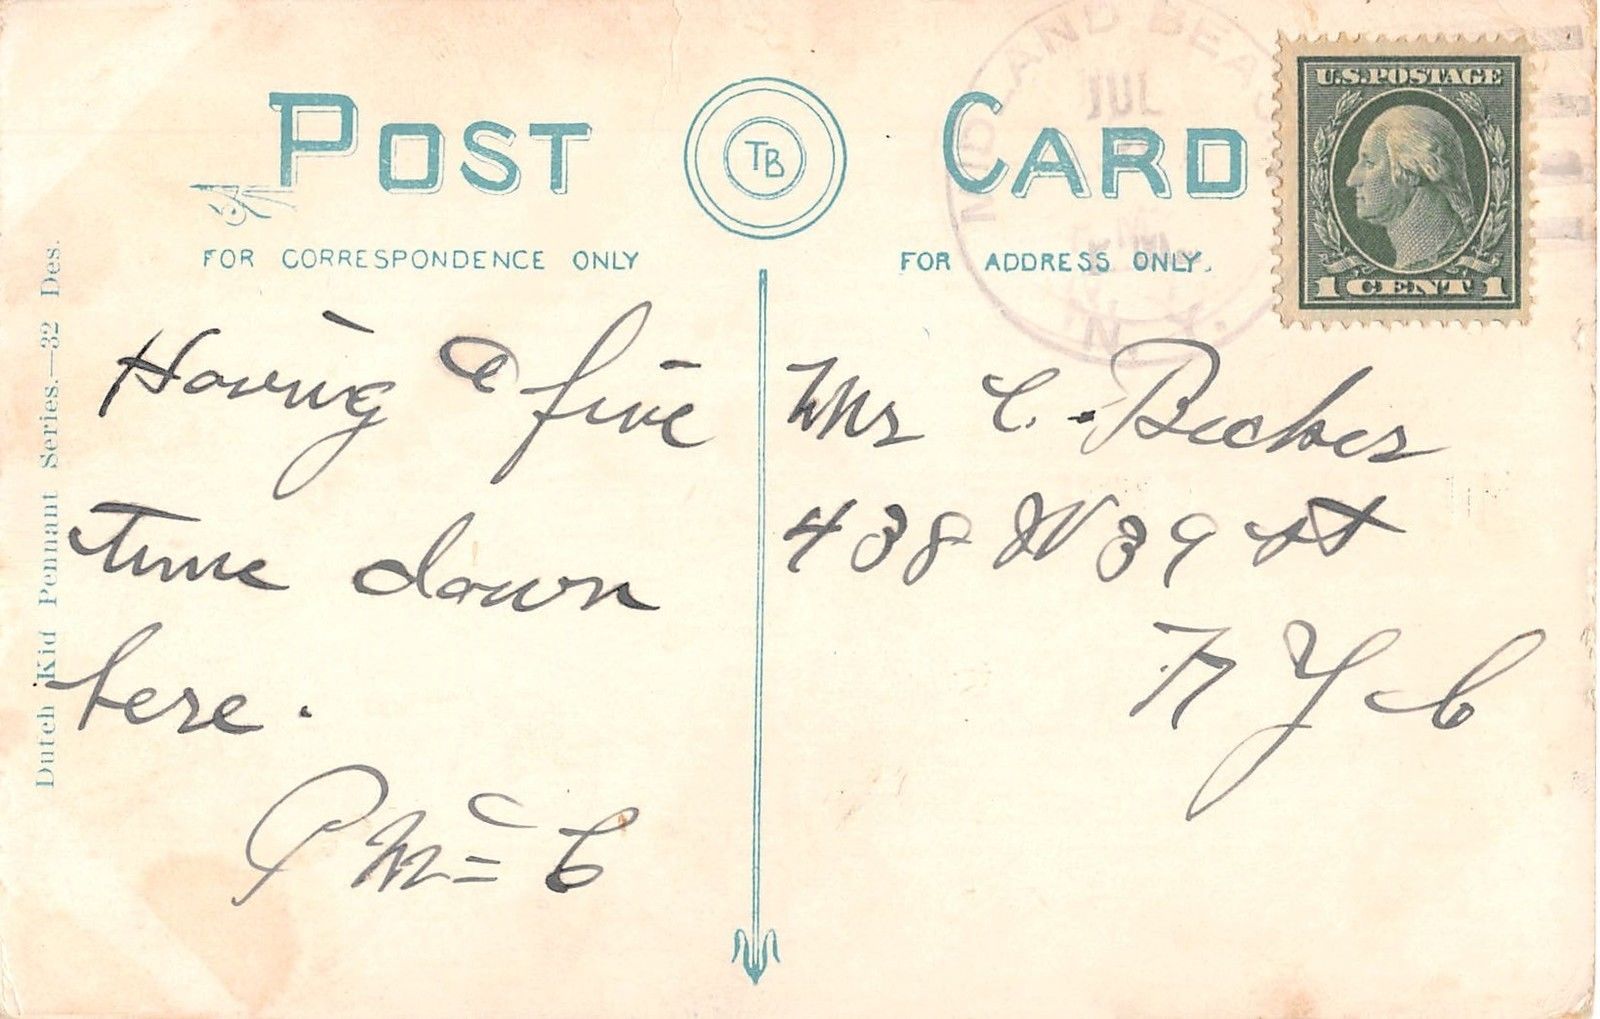 POST CARD
TB
FOR CORRESPONDENCE ONLY
FOR ADDRESS ONLY.
MIDLAND BEACH
JUL
N.Y.
U.S. POSTAGE
1 CENT 1
Dutch Kid Pennant Series.—32 Des.
Having a fine
time down
here.
P McC
Mr C. Becker
438 W 39 st
N Y C